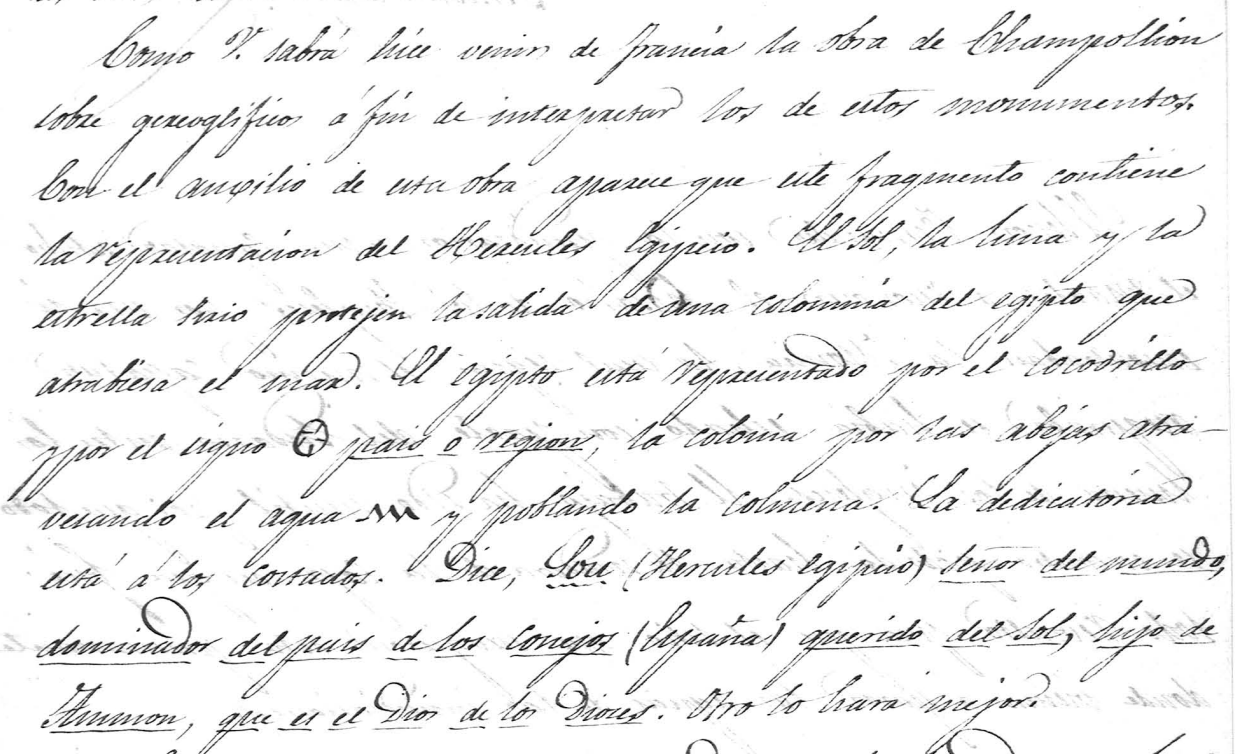 Como V. sabrá hice venir de francia la obra de Champollión
sobre gereoglíficos á fin de interpretar los de estos monumentos.
Con el aucsilio de esta obra aparece que este fragmento contiene
la representacion del Hercules Egipcio. El Sol, la luna y la
estrella sirio protejen la salida de una colonia del egipto que
atrabiesa el mar. El egipto está representado por el Cocodrillo
y por el signo pais o region, la colonia por las abejas atra-
vesando el agua y poblando la colmena. La dedicatoria
está á los costados. Dice, Sou (Hercules egipcio) señor del mundo,
dominador del pais de los conejos (España) querido del Sol, hijo de
Ammon, que es el Dios de los Dioses. Otro lo hara mejor.